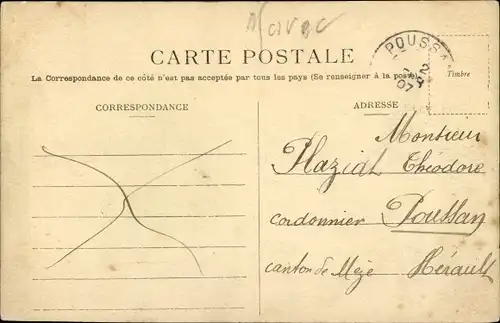 CARTE POSTALE
La Correspondance de ce côté n'est pas acceptée par tous les pays (Se renseigner à la poste)
POUSSA
2
07
Timbre
CORRESPONDANCE
ADRESSE
Monsieur
Plazial Théodore
cordonnier Poussan
canton de Mèze Hérault